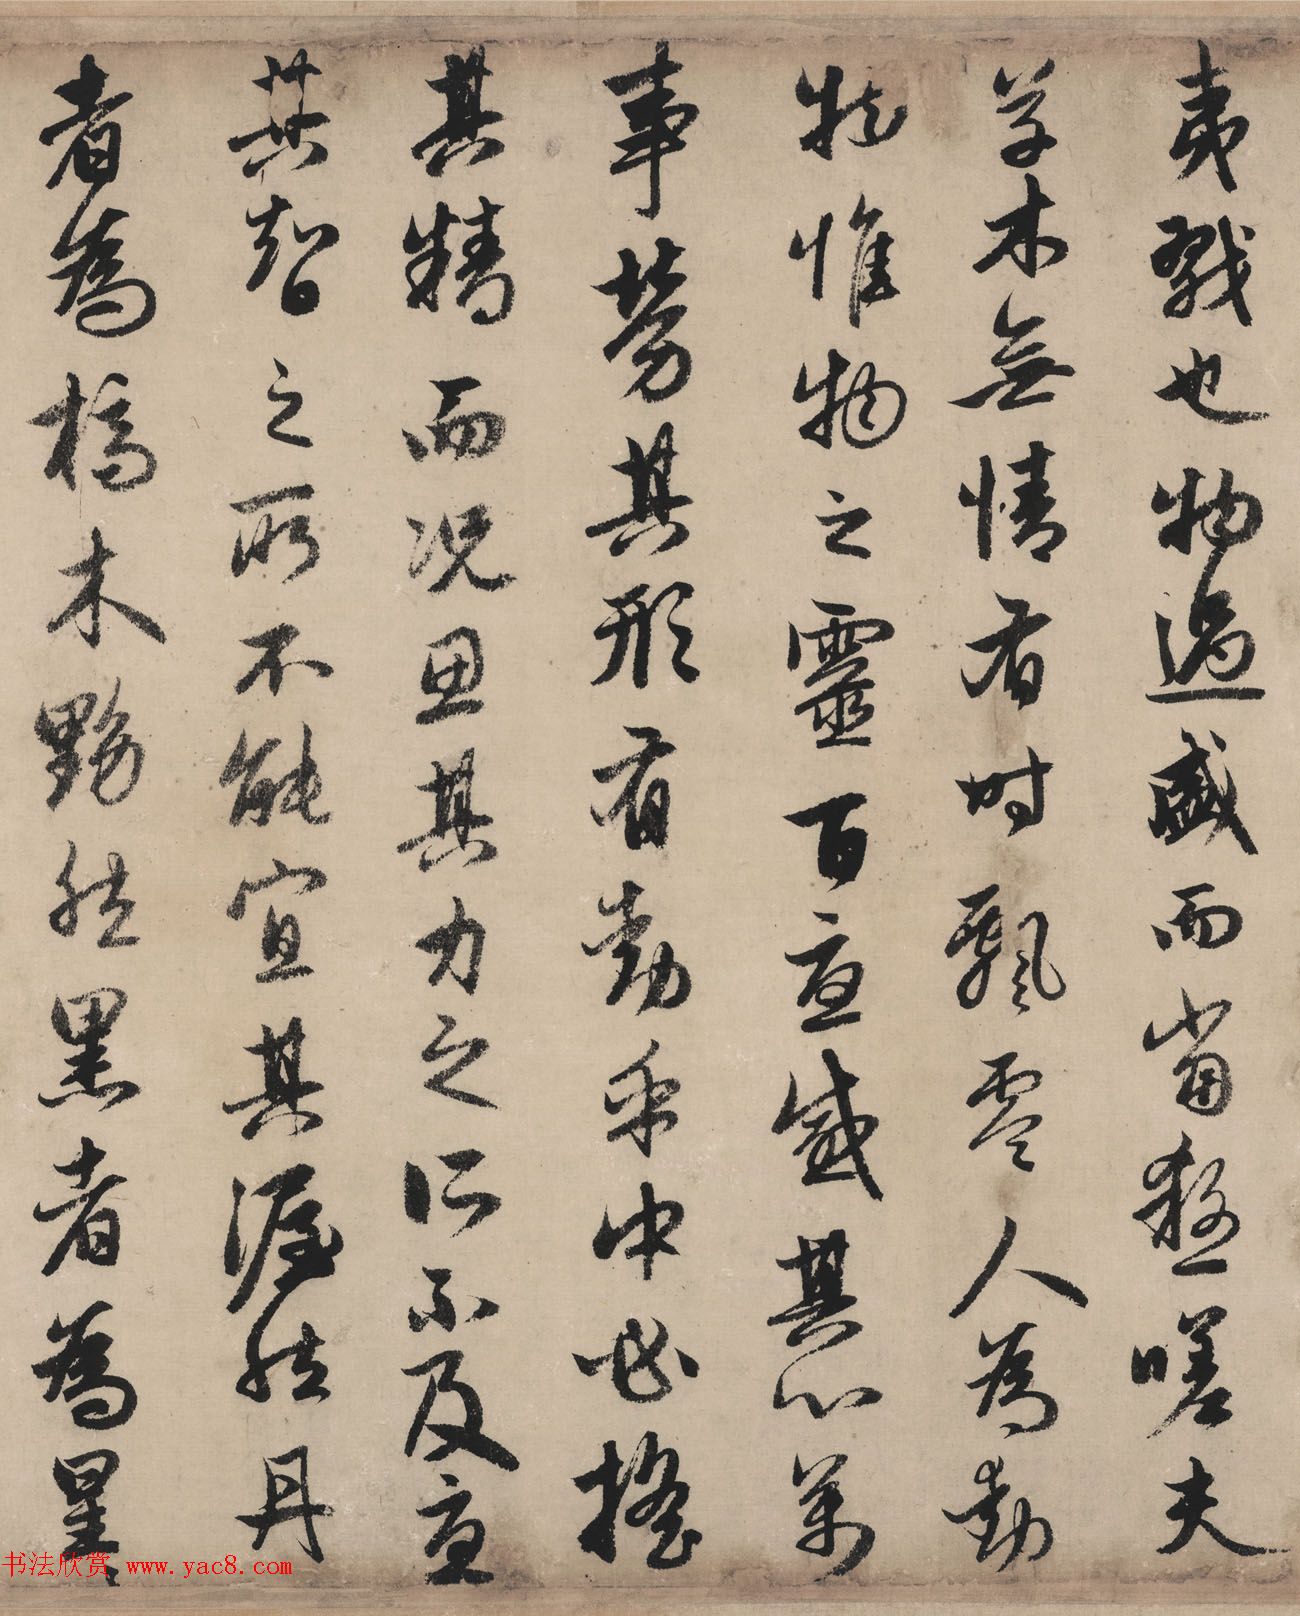 夷戮也物過盛而當殺嗟夫
草木無情有時飄零人為動
物惟物之靈百憂感其心萬
事勞其形有動乎中必搖
其精而況思其力之所不及憂
其智之所不能宜其渥然丹
者為槁木黟然黑者為星
书法欣赏 www.yac8.com